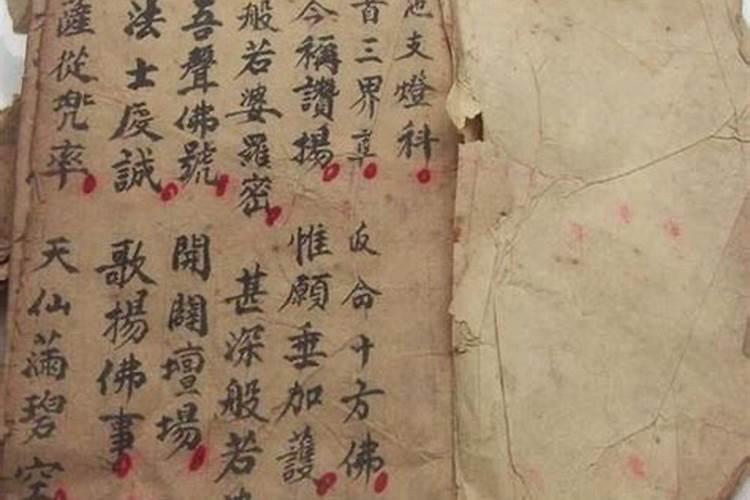 支燈科
首三界尊 命十方佛
今稱讚揚 惟願垂加護
般若婆羅密 甚深般若
吾聲佛號 開闢壇場
法士虔誠 歌揚佛事
薩從兜率 天仙滿碧空